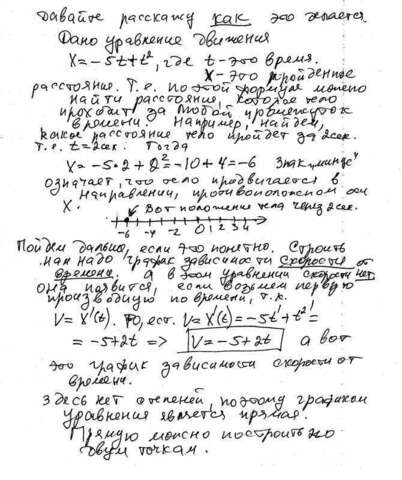 Давайте расскажу как это делается.
Дано уравнение движения
X = -5t + t², где t - это время.
X - это пройденное
расстояние. Т.е. по этой формуле можно
найти расстояние, которое тело
проходит за любой промежуток
времени. Например, найдем,
какое расстояние тело пройдет за 2 сек.
т.е. t = 2 сек. Тогда
X = -5·2 + 2² = -10 + 4 = -6 Знак „минус"
означает, что тело продвигается в
направлении, противоположном оси
X. Вот положение тела через 2 сек.
-6 -4 -2 0 1 2 3 4
Пойдём дальше, если это понятно. Строить
нам надо график зависимости скорости от
времени. а в этом уравнении скорости нет
она появится, если возьмем первую
производную по времени, т.к.
V = X'(t). То, ест. V = X'(t) = -5t' + t²' =
= -5 + 2t => V = -5 + 2t а вот
это график зависимости скорости от
времени.
Здесь нет степеней, поэтому графиком
уравнения является прямая.
Прямую можно построить по
двум точкам.